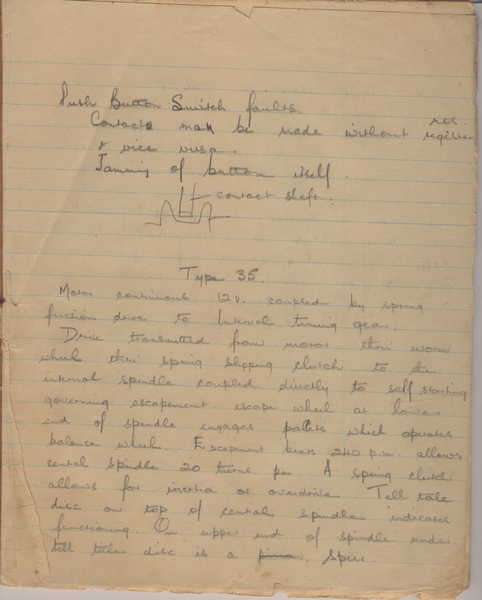 Push Button Switch faults.
Contacts may be made without register
& vice versa.
Jamming of button itself.
contact shaft.
Type 35.
Motor continuous 12v. coupled by spring
friction drive to internal timing gear.
Drive transmitted from motor thru worm
wheel thru spring slipping clutch to the
internal spindle coupled directly to self starting
governing escapement escape wheel at lower
end of spindle engages pallets which operates
balance wheel. Escapement beats 240 p.m. allows
central spindle 20 turns pm. A spring clutch
allows for inertia or overdrive. Tell tale
disc on top of central spindle indicates
functioning. On upper end of spindle under
tell tale disc is a spur